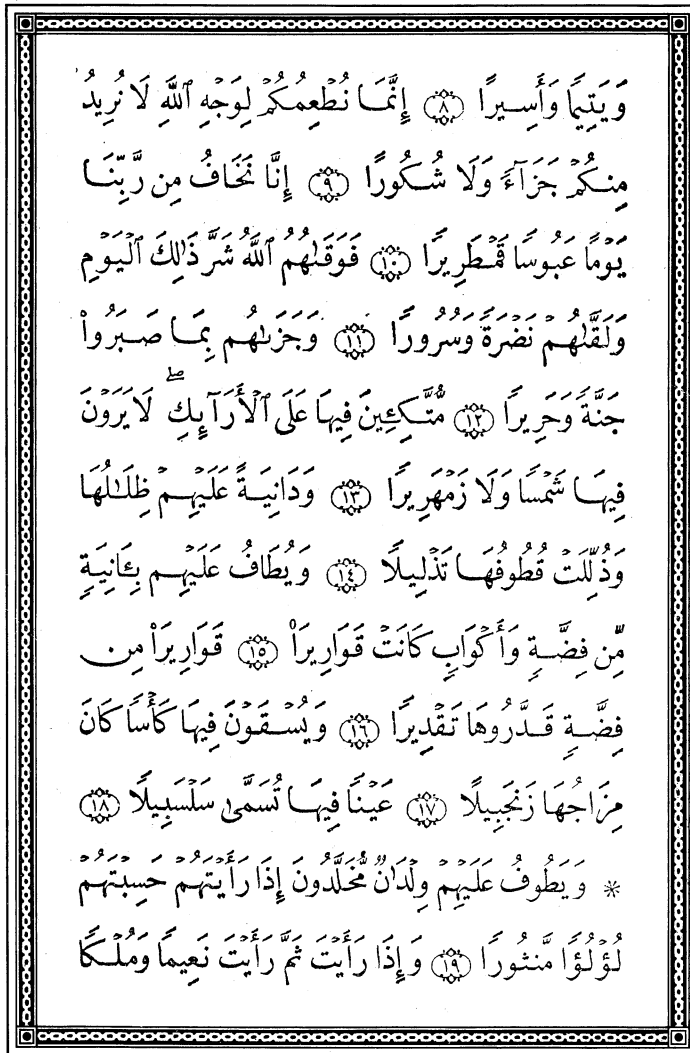 وَيَتِيمًا وَأَسِيرًا ٨ إِنَّمَا نُطْعِمُكُمْ لِوَجْهِ ٱللَّهِ لَا نُرِيدُ
مِنكُمْ جَزَآءً وَلَا شُكُورًا ٩ إِنَّا نَخَافُ مِن رَّبِّنَا
يَوْمًا عَبُوسًا قَمْطَرِيرًا ١٠ فَوَقَىٰهُمُ ٱللَّهُ شَرَّ ذَٰلِكَ ٱلْيَوْمِ
وَلَقَّىٰهُمْ نَضْرَةً وَسُرُورًا ١١ وَجَزَىٰهُم بِمَا صَبَرُوا۟
جَنَّةً وَحَرِيرًا ١٢ مُّتَّكِـِٔينَ فِيهَا عَلَى ٱلْأَرَآئِكِ ۖ لَا يَرَوْنَ
فِيهَا شَمْسًا وَلَا زَمْهَرِيرًا ١٣ وَدَانِيَةً عَلَيْهِمْ ظِلَـٰلُهَا
وَذُلِّلَتْ قُطُوفُهَا تَذْلِيلًا ١٤ وَيُطَافُ عَلَيْهِم بِـَٔانِيَةٍ
مِّن فِضَّةٍ وَأَكْوَابٍ كَانَتْ قَوَارِيرَا۠ ١٥ قَوَارِيرَا۟ مِن
فِضَّةٍ قَدَّرُوهَا تَقْدِيرًا ١٦ وَيُسْقَوْنَ فِيهَا كَأْسًا كَانَ
مِزَاجُهَا زَنجَبِيلًا ١٧ عَيْنًا فِيهَا تُسَمَّىٰ سَلْسَبِيلًا ١٨
* وَيَطُوفُ عَلَيْهِمْ وِلْدَٰنٌ مُّخَلَّدُونَ إِذَا رَأَيْتَهُمْ حَسِبْتَهُمْ
لُؤْلُؤًا مَّنثُورًا ١٩ وَإِذَا رَأَيْتَ ثَمَّ رَأَيْتَ نَعِيمًا وَمُلْكًا